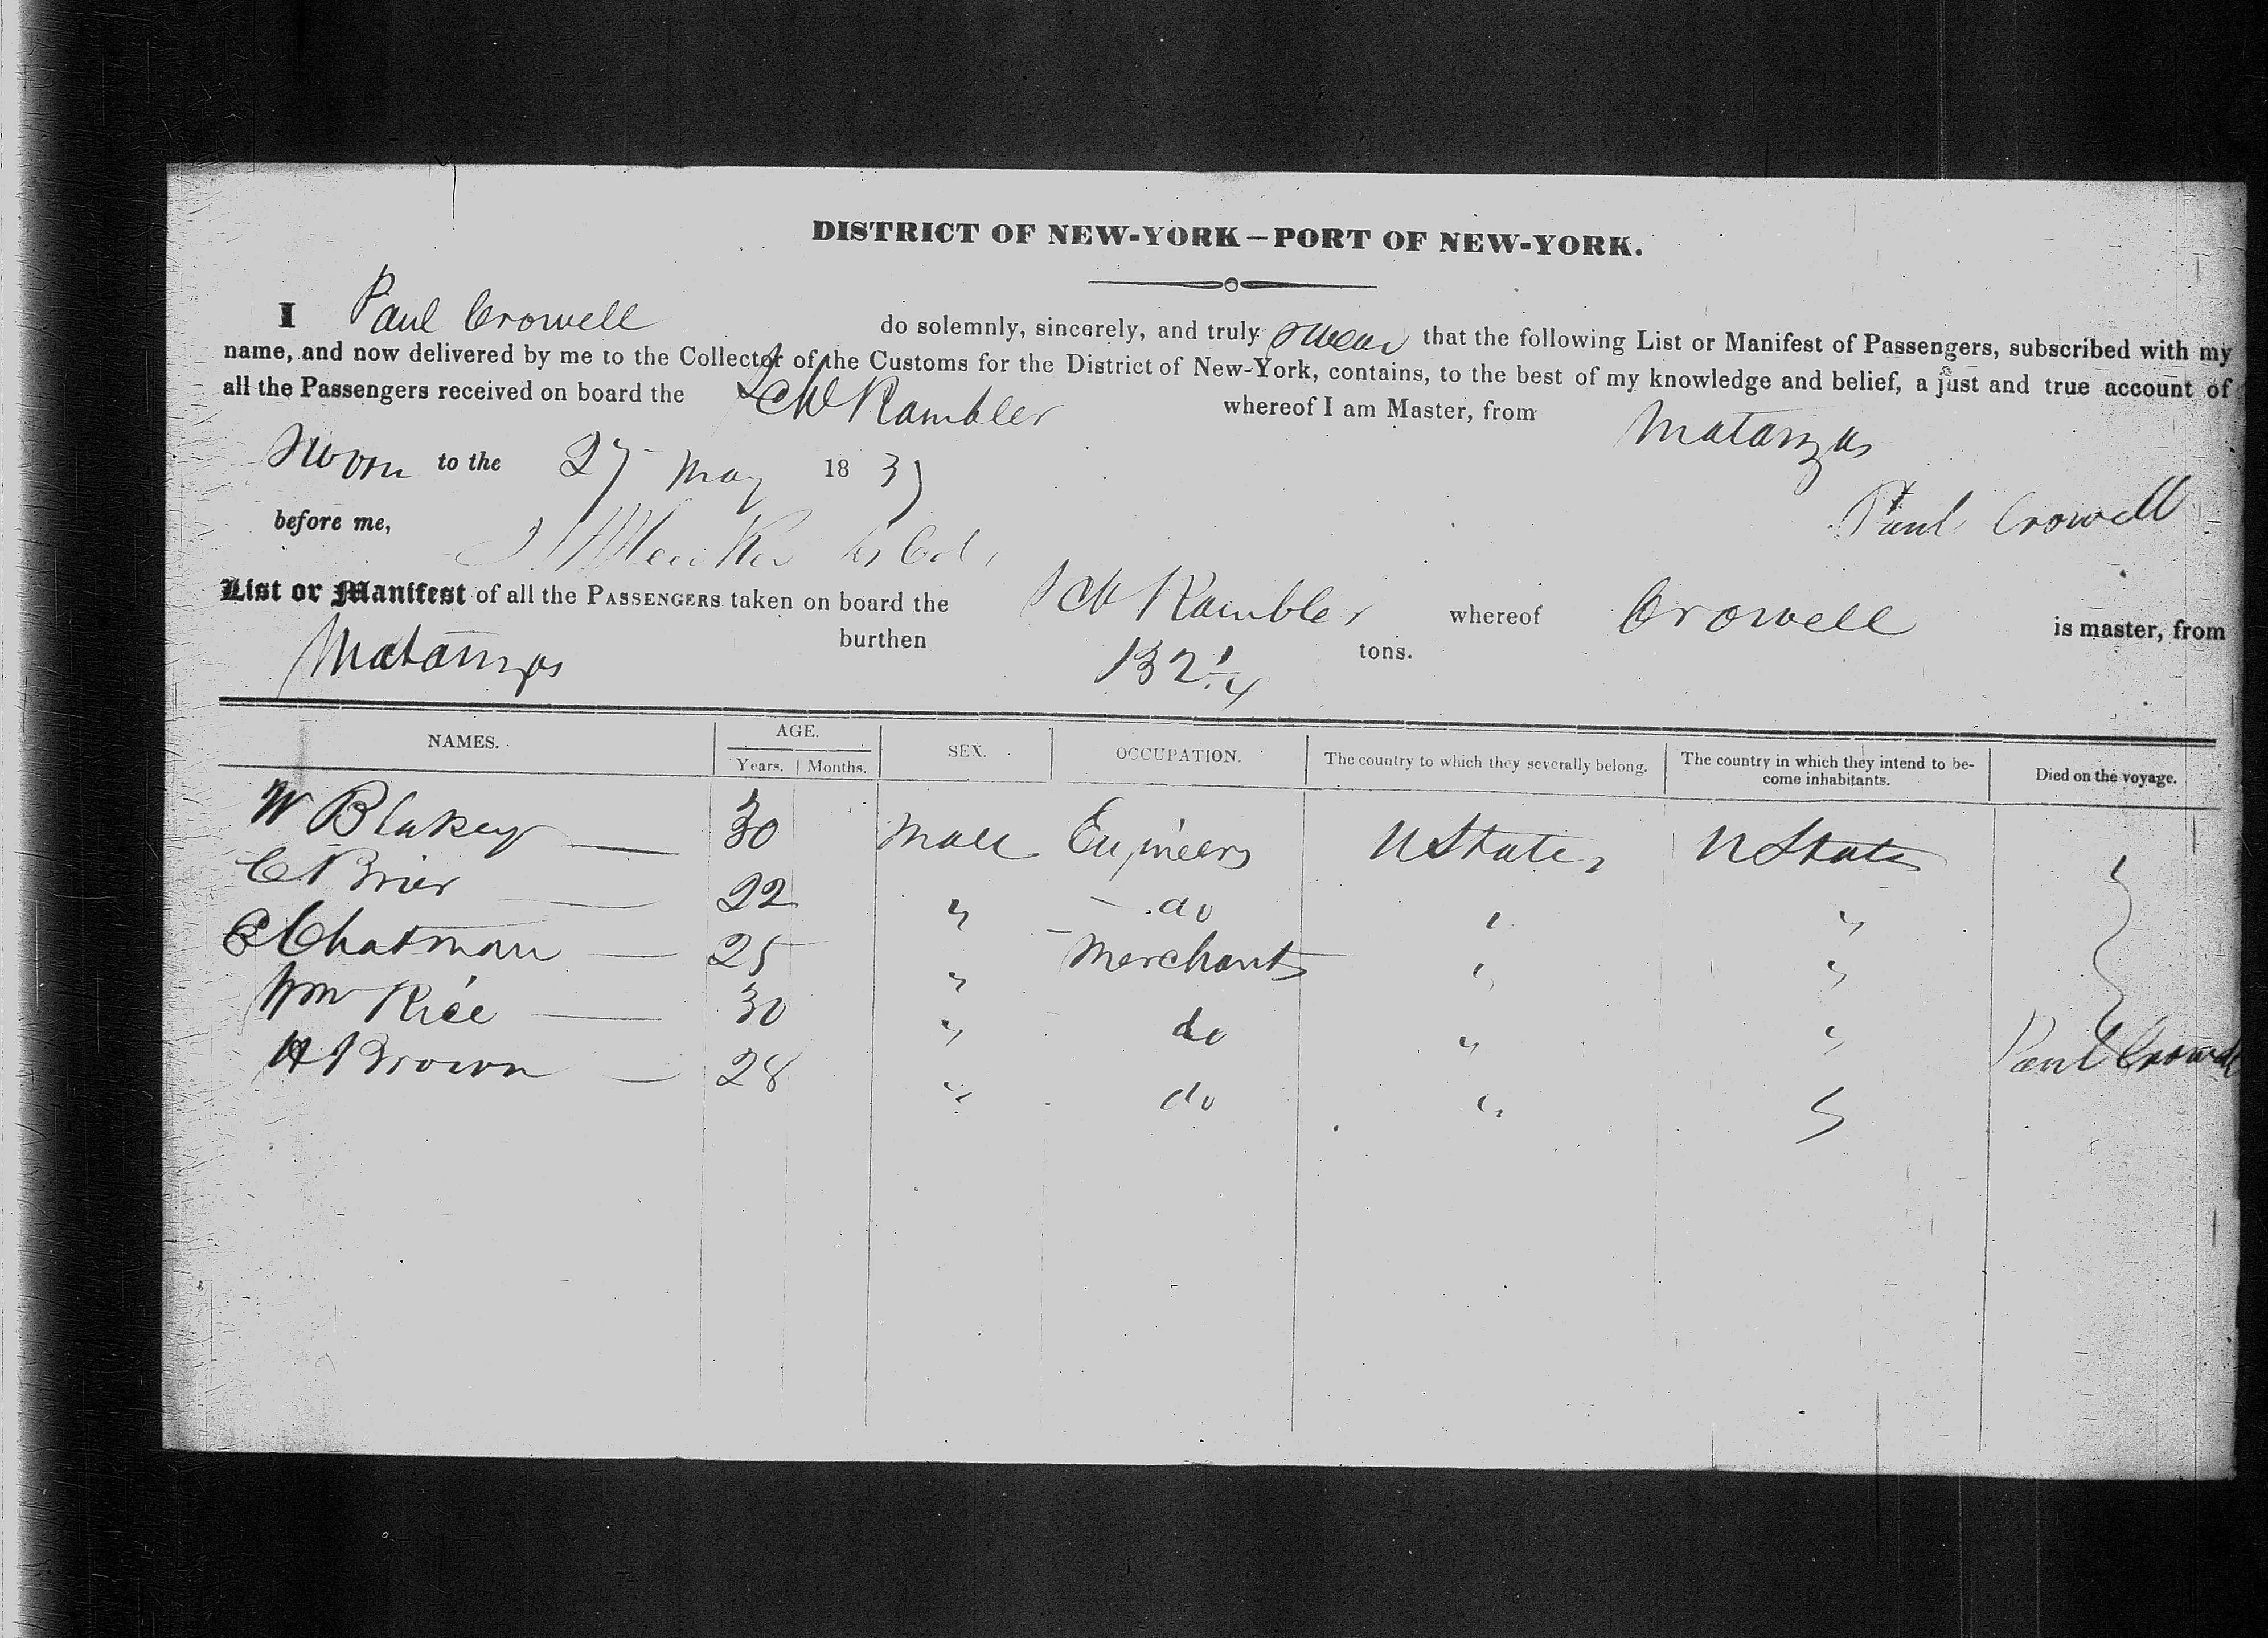 DISTRICT OF NEW-YORK—PORT OF NEW-YORK.
I Paul Crowell do solemnly, sincerely, and truly swear that the following List or Manifest of Passengers, subscribed with my
name, and now delivered by me to the Collector of the Customs for the District of New-York, contains, to the best of my knowledge and belief, a just and true account of
all the Passengers received on board the Sch Rambler whereof I am Master, from Matanzas
Sworn to the 27 May 1837
before me, Paul Crowell
List or Manifest of all the PASSENGERS taken on board the Sch Rambler whereof Crowell is master, from
Matanzas burthen 132 1/4 tons.
NAMES. AGE. SEX. OCCUPATION. The country to which they severally belong. The country in which they intend to be- Died on the voyage.
Years. Months. come inhabitants.
W Blakey 30 Male Engineers U States U States
C Brier 22 " do " "
E Chatman 25 " Merchants " "
Wm Rice 30 " do " "
H Brown 28 " do " "
Paul Crowell